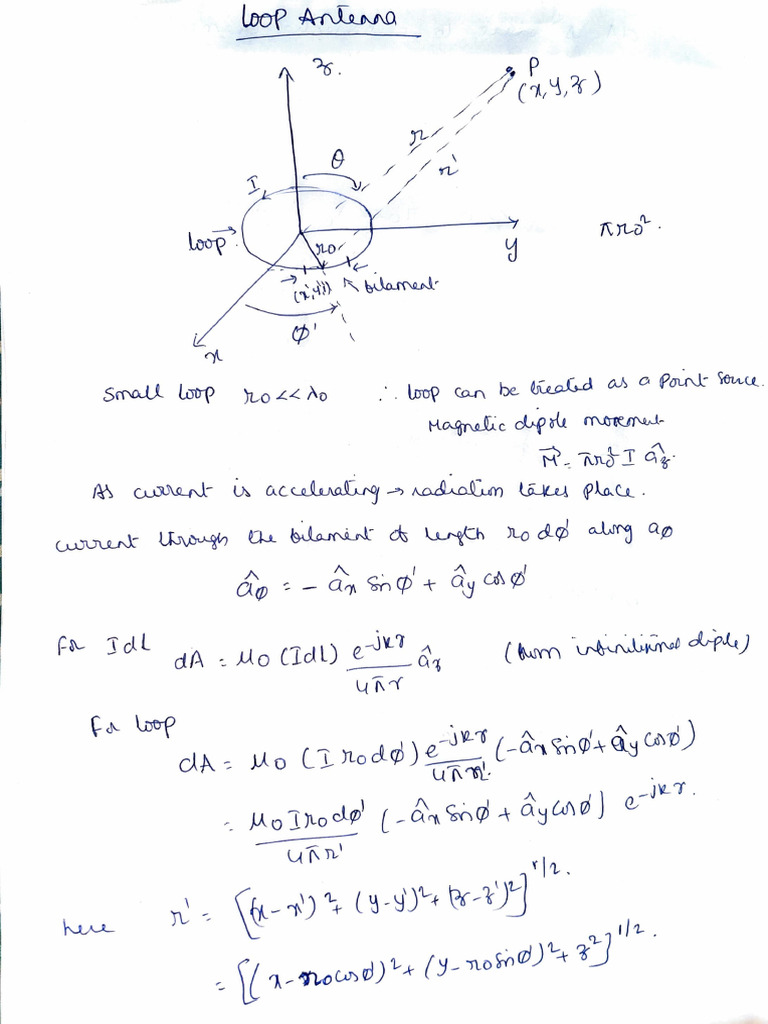 Loop Antenna
z.
P
(x, y, z)
r
θ
r'
I
loop
r0
y
πr0².
(x',y')
filament
φ'
x
Small loop r0<<λ0 ∴ loop can be treated as a point source.
Magnetic dipole movement
M⃗ = πr0² I âz.
As current is accelerating → radiation takes place.
current through the filament of length r0 dφ' along aφ
âφ = - âx sinφ' + ây cosφ'
For Idl dA = μ0 (Idl) e^-jkr / 4πr âz (from infinitismal diple)
For loop
dA = μ0 (I r0dφ') e^-jkr / 4πr' (-âx sinφ' + ây cosφ')
= μ0 I r0 dφ' / 4πr' (-âx sinφ' + ây cosφ') e^-jkr.
here r' = [(x-x')² + (y-y')² + (z-z')²]^1/2.
= [(x-r0cosφ')² + (y-r0sinφ')² + z²]^1/2.